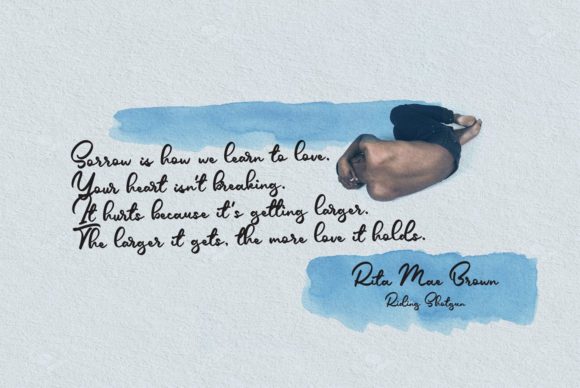 Sorrow is how we learn to love.
Your heart isn't breaking.
It hurts because it's getting larger.
The larger it gets, the more love it holds.
Rita Mae Brown
Riding Shotgun